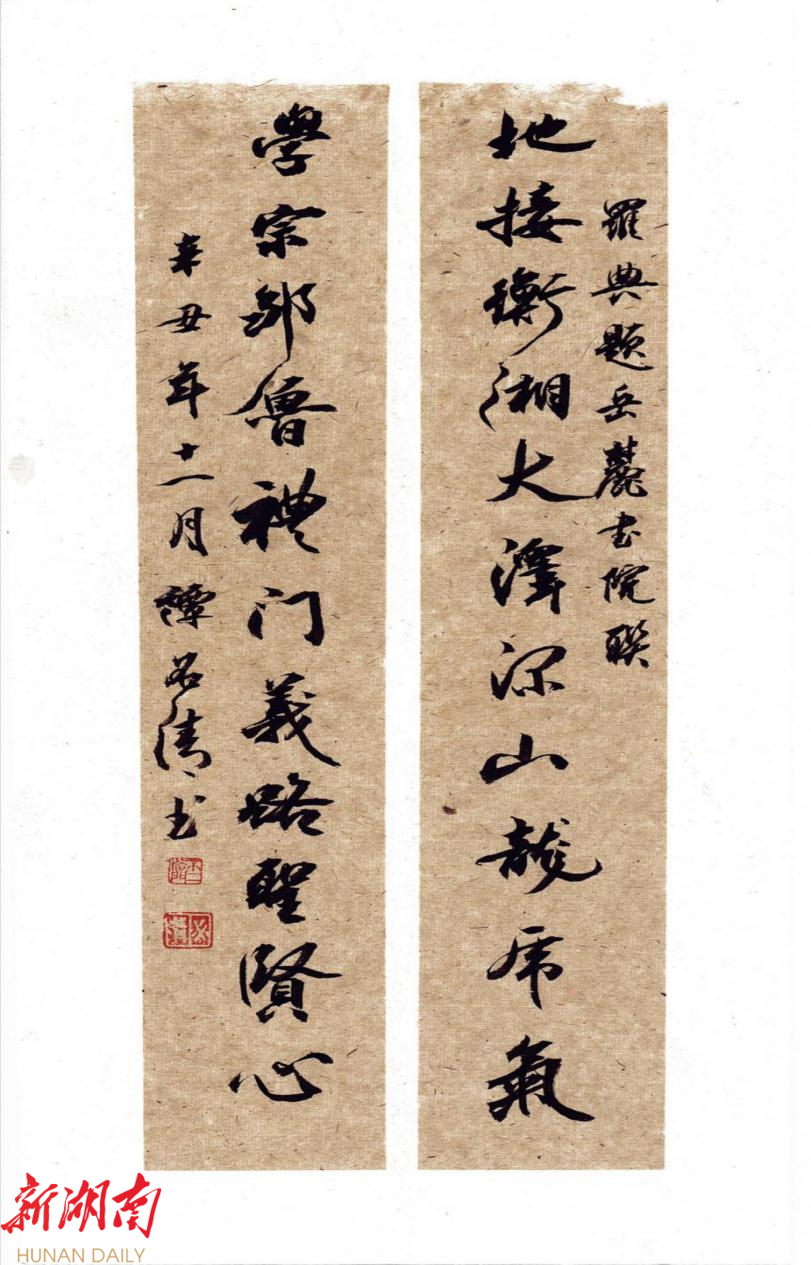 羅典題岳麓书院联
地接衡湘大澤深山龍虎氣
學宗鄒魯禮门義路聖賢心
辛丑年十一月譚名清书
新湖南
HUNAN DAILY